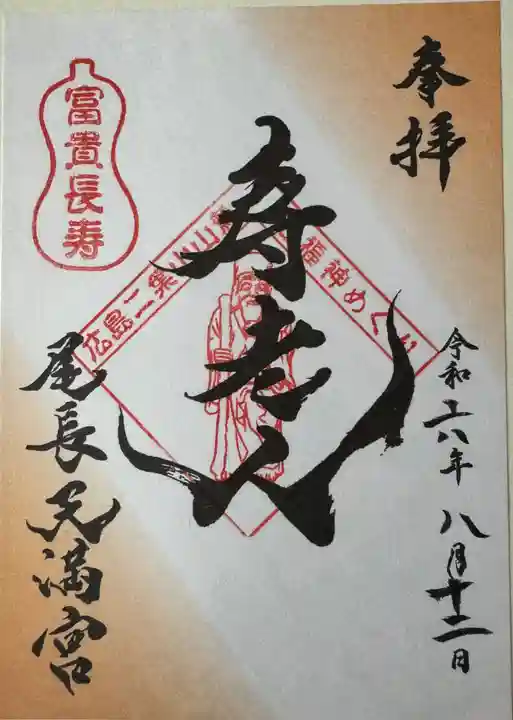 奉拝
寿老人
令和六年八月十二日
富貴長寿
広島二葉山山麓
福神めぐり
尾長天満宮